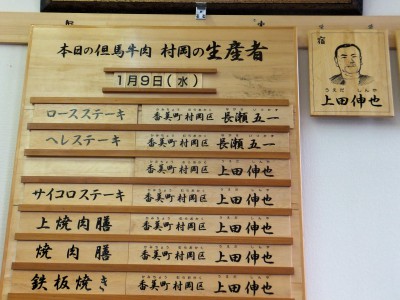 本日の但馬牛肉 村岡の生産者
1月9日(水)
ロースステーキ 香美町村岡区 長瀬五一
ヘレステーキ 香美町村岡区 長瀬五一
香美町村岡区 上田伸也
サイコロステーキ 香美町村岡区 上田伸也
上焼肉膳 香美町村岡区 上田伸也
焼肉膳 香美町村岡区 上田伸也
鉄板焼き 香美町村岡区 上田伸也
うえだ しんや
上田伸也